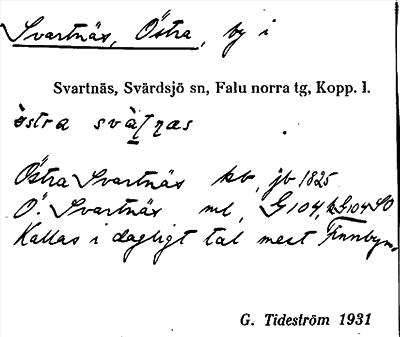 Svartnäs, Östra, by i
Svartnäs, Svärdsjö sn, Falu norra tg, Kopp. l.
östra
Östra Svartnäs kb, jb 1825
Ö. Svartnäs ml, G104, kG104 SO
Kallas i dagligt tal mest Finnbyn.
G. Tideström 1931